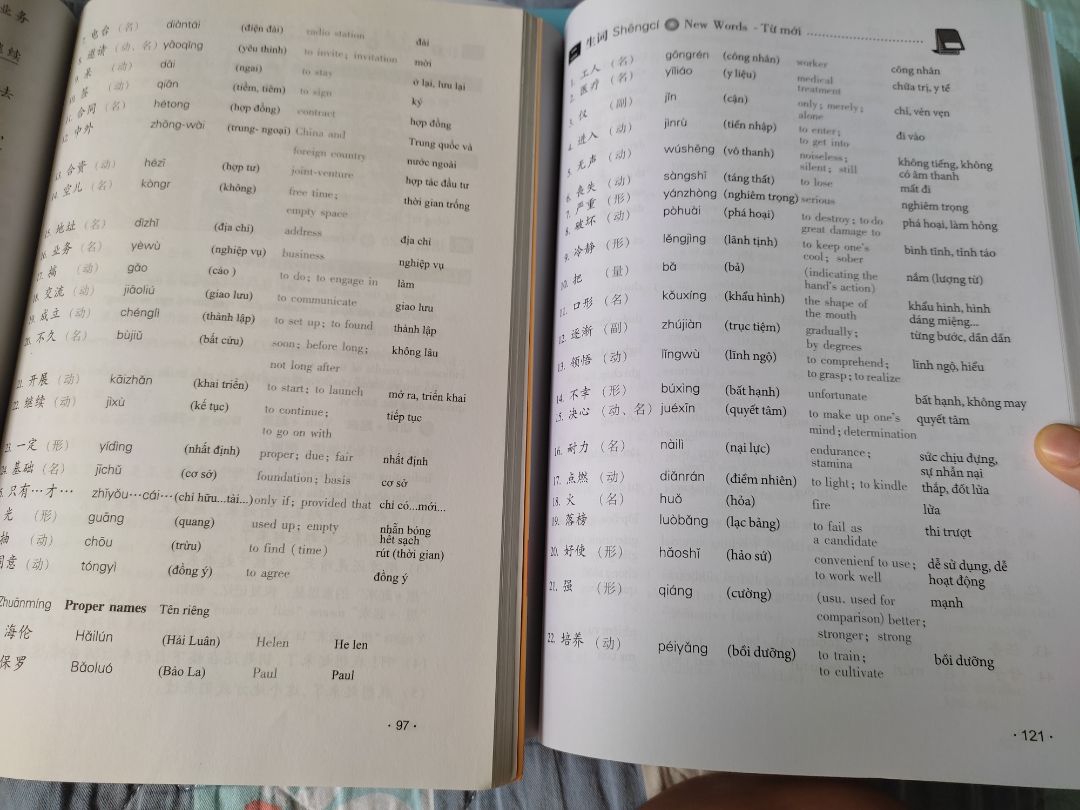 业务
去
7. 电台（名） diàntái (điện đài) radio station đài
8. 邀请（动、名）yāoqǐng (yêu thỉnh) to invite; invitation mời
9. 呆 （动） dāi (ngai) to stay ở lại, lưu lại
10. 签 （动） qiān (tiềm, tiêm) to sign ký
11. 合同（名） hétong (hợp đồng) contract hợp đồng
12. 中外 zhōng-wài (trung- ngoại) China and Trung quốc và
foreign country nước ngoài
13. 合资（动） hézī (hợp tư) joint-venture hợp tác đầu tư
14. 空儿（名） kòngr (không) free time; thời gian trống
empty space
15. 地址（名） dìzhǐ (địa chỉ) address địa chỉ
16. 业务（名） yèwù (nghiệp vụ) business nghiệp vụ
17. 搞 （动） gǎo (cáo ) to do; to engage in làm
18. 交流（动） jiāoliú (giao lưu) to communicate giao lưu
19. 成立（动） chénglì (thành lập) to set up; to found thành lập
20. 不久（名） bùjiǔ (bất cửu) soon; before long; không lâu
not long after
21. 开展（动） kāizhǎn (khai triển) to start; to launch mở ra, triển khai
22. 继续（动） jìxù (kế tục) to continue; tiếp tục
to go on with
23. 一定（形） yídìng (nhất định) proper; due; fair nhất định
24. 基础（名） jīchǔ (cơ sở) foundation; basis cơ sở
只有…才… zhǐyǒu…cái… (chỉ hữu...tài...) only if; provided that chỉ có...mới...
光 （形） guāng (quang) used up; empty nhẵn bóng
hết sạch
抽 （动） chōu (trừu) to find (time) rút (thời gian)
同意（动） tóngyì (đồng ý) to agree đồng ý
Zhuānmíng Proper names Tên riêng
海伦 Hǎilún (Hải Luân) Helen He len
保罗 Bǎoluó (Bảo La) Paul Paul
·97·
生词 Shēngcí New Words - Từ mới
1. 工人（名） gōngrén (công nhân) worker công nhân
2. 医疗（名） yīliáo (y liệu) medical chữa trị, y tế
treatment
3. 仅 （副） jǐn (cận) only; merely; chỉ, vẻn vẹn
alone
4. 进入（动） jìnrù (tiến nhập) to enter; đi vào
to get into
5. 无声（动） wúshēng (vô thanh) noiseless; không tiếng, không
silent; still có âm thanh
6. 丧失（动） sàngshī (táng thất) to lose mất đi
7. 严重（形） yánzhòng (nghiêm trọng) serious nghiêm trọng
8. 破坏（动） pòhuài (phá hoại) to destroy; to do phá hoại, làm hỏng
great damage to
9. 冷静（形） lěngjìng (lãnh tịnh) to keep one's bình tĩnh, tỉnh táo
cool; sober
10. 把 （量） bǎ (bả) (indicating the nắm (lượng từ)
hand's action)
11. 口形（名） kǒuxíng (khẩu hình) the shape of khẩu hình, hình
the mouth dáng miệng...
12. 逐渐（副） zhújiàn (trục tiệm) gradually; từng bước, dần dần
by degrees
13. 领悟（动） lǐngwù (lĩnh ngộ) to comprehend; lĩnh ngộ, hiểu
to grasp; to realize
14. 不幸（形） búxìng (bất hạnh) unfortunate bất hạnh, không may
15. 决心（动、名）juéxīn (quyết tâm) to make up one's quyết tâm
mind; determination
16. 耐力（名） nàilì (nại lực) endurance; sức chịu đựng,
stamina sự nhẫn nại
17. 点燃（动） diǎnrán (điểm nhiên) to light; to kindle thắp, đốt lửa
18. 火 （名） huǒ (hỏa) fire lửa
19. 落榜 luòbǎng (lạc bảng) to fail as thi trượt
a candidate
20. 好使（形） hǎoshǐ (hảo sử) convenienf to use; dễ sử dụng, dễ
to work well hoạt động
21. 强 （形） qiáng (cường) (usu. used for mạnh
comparison) better;
stronger; strong
22. 培养（动） péiyǎng (bồi dưỡng) to train; bồi dưỡng
to cultivate
·121·